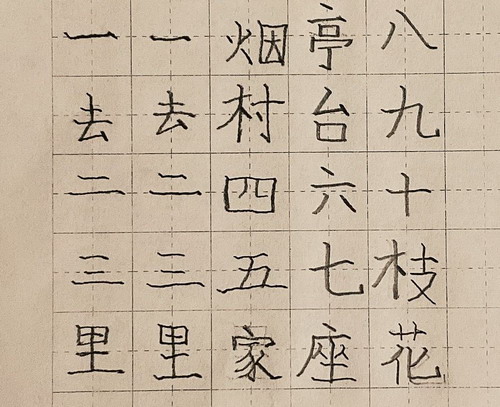 一去二三里
一去二三里
烟村四五家
亭台六七座
八九十枝花